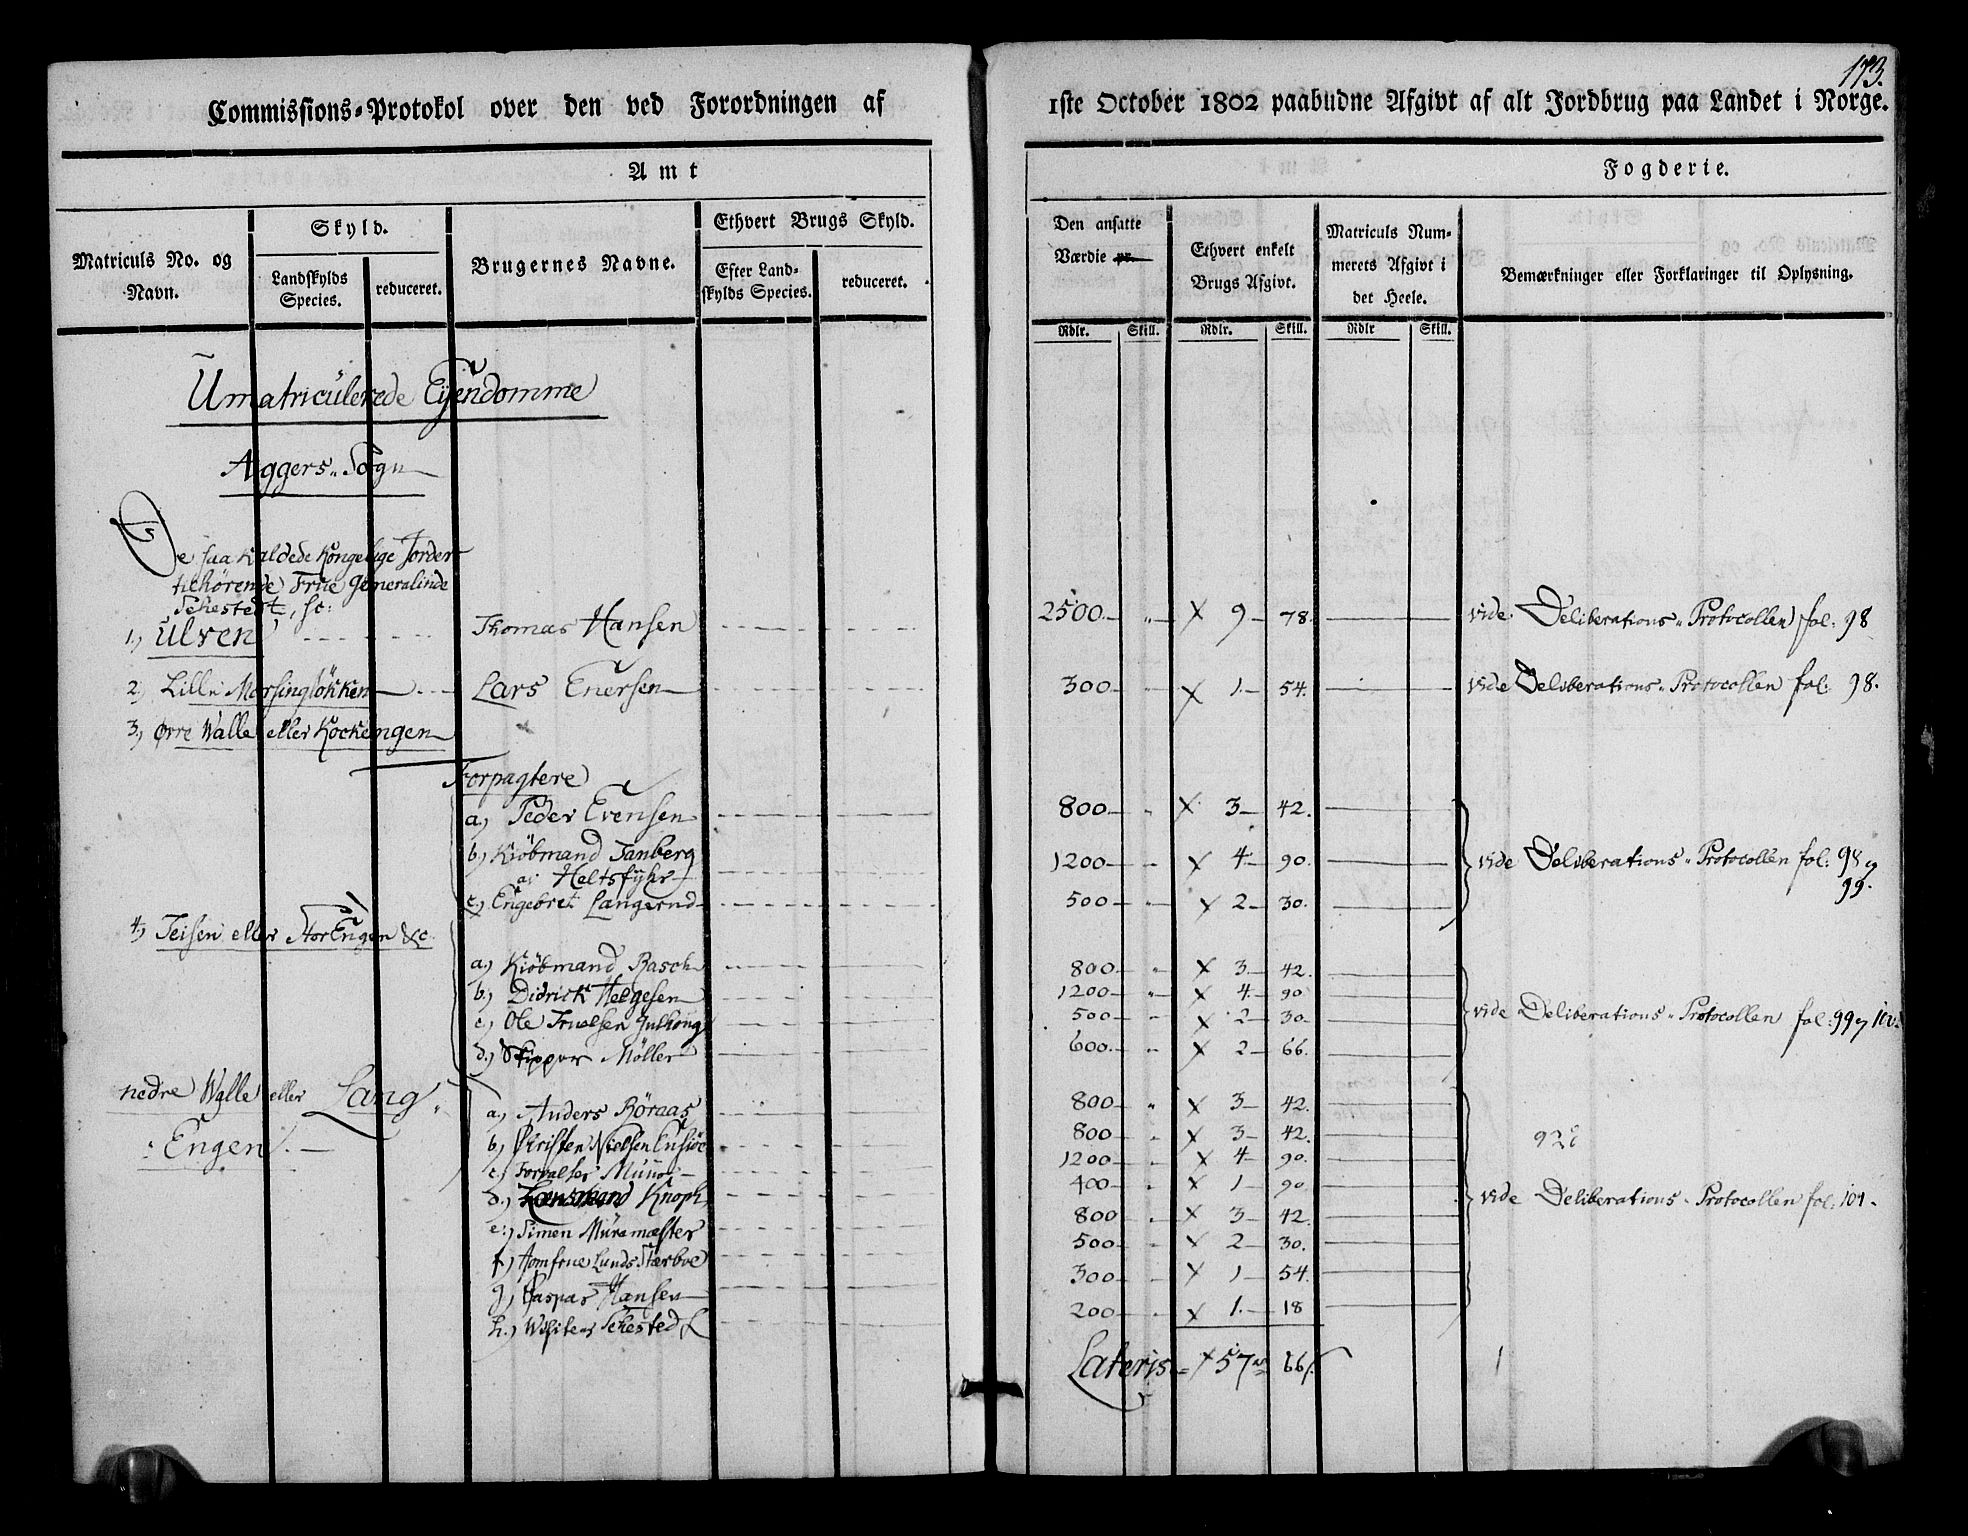 173.
Commissions-Protokol over den ved Forordningen af 1ste October 1802 paabudne Afgivt af alt Jordbrug paa Landet i Norge.
Amt Fogderie.
Matriculs No. og Navn.
Skyld.
Landskylds Species.
reduceret.
Brugernes Navne.
Ethvert Brugs Skyld.
Efter Landskylds Species.
reduceret.
Den ansatte Værdie pr.
Rdlr. Skill.
Ethvert enkelt Brugs Afgivt.
Rdlr. Skill.
Matriculs Nummerets Afgivt i det Heele.
Rdlr Skill.
Bemærkninger eller Forklaringer til Oplysning.
Umatriculerede Eijendomme
Aggers Sogn
De saa kaldede Kongelige Jorder
tilhørende Frue Generalinde
Sehestedt, sc:
1.) Ulven Thomas Hansen 2500 " X 9 78. vide Deliberations-Protocollen fol: 98
2.) Lille Morsingløkken Lars Enersen 300 X 1 54. vide Deliberations-Protocollen fol: 98.
3.) Øvre Walle eller Kockengen
Forpagtere
a.) Peder Evensen 800 " X 3 42.
b.) Kiöbmand Tanberg
a: Heltsfyhr 1200 " X 4 90. vide Deliberations-Protocollen fol: 98 og
99.
c.) Engebret Langerud 500 " X 2 30.
4.) Teisen eller StorEngen &c.
a.) Kiöbmand Rasch 800 " X 3 42.
b.) Didrick Helgesen 1200 " X 4 90
c.) Ole Truelsen 500 " X 2 30 vide Deliberations-Protocollen fol: 99 og 100.
d.) Skipper Møller 600 " X 2 66.
nedre Walle eller Lang-
Engen.
a.) Anders Röraas 800 " X 3 42.
b.) Christen Nielsen 800 X 3 42.
c.) Forvalter 1200 X 4 90.
d.) Knoph 400 X 1 90 vide Deliberations-Protocollen fol: 101.
e.) Simen Müremester 800 X 3 42.
f.) Jomfrue Lunds Stærboe 500 X 2 30.
g.) Caspar Hansen 300 X 1 54.
h.) Sehested 200 X 1 18
Lateris X 57 66